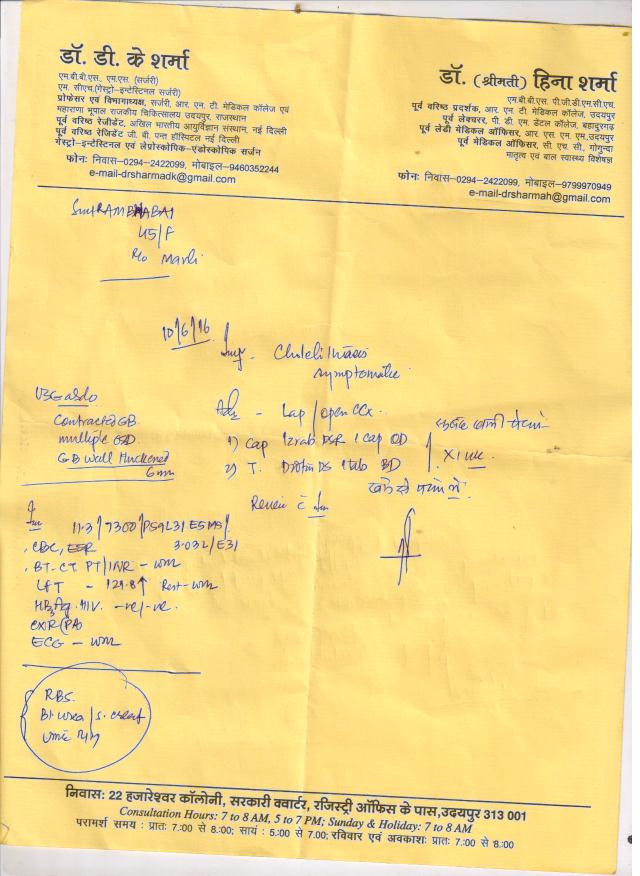 डॉ. डी. के शर्मा
एम.बी.बी.एस., एम.एस. (सर्जरी)
एम. सीएच.(गेस्ट्रो-इन्टेस्टिनल सर्जरी)
प्रोफेसर एवं विभागाध्यक्ष, सर्जरी, आर. एन. टी. मेडिकल कॉलेज एवं
महाराणा भूपाल राजकीय चिकित्सालय उदयपुर, राजस्थान
पूर्व वरिष्ठ रेजीडेंट, अखिल भारतीय आयुर्विज्ञान संस्थान, नई दिल्ली
पूर्व वरिष्ठ रेजिडेंट जी. बी. पन्त हॉस्पिटल नई दिल्ली
गेस्ट्रो-इन्टेस्टिनल एवं लेप्रोस्कोपिक-एंडोस्कोपिक सर्जन
फोनः निवास-0294-2422099, मोबाइल-9460352244
e-mail-drsharmadk@gmail.com
डॉ. (श्रीमती) हिना शर्मा
एम.बी.बी.एस. पी.जी.डी.एम.सी.एच.
पूर्व वरिष्ठ प्रदर्शक, आर. एन. टी. मेडिकल कॉलेज, उदयपुर
पूर्व लेक्चरर, पी. डी. एम. डेंटल कॉलेज, बहादुरगढ़
पूर्व लेडी मेडिकल ऑफिसर, आर. एस. एम. एम.,उदयपुर
पूर्व मेडिकल ऑफिसर, सी. एच. सी., गोगुन्दा
मातृत्व एवं बाल स्वास्थ्य विशेषज्ञ
फोनः निवास–0294-2422099, मोबाइल-9799970949
e-mail-drsharmah@gmail.com
45/F
R/o
10/6/16
Imp - Cholelithiasis
symptomatic
USG abdo
Contracted GB
multiple GSD
GB wall thickened
6mm
Adv - Lap/open CCx
1) Cap Izrab DSR 1 cap OD
2) T. Drotin DS 1 tab BD
Review c
11.3/7300/P59L31E5M5/
CBC, ESR
BT-CT PT/INR - WNL
LFT - 129.8↑ Rest-WNL
HBsAg. HIV. -ve/-ve.
CXR(PA)
ECG - WNL
RBS.
Bl. urea/s. creat
निवासः 22 हजारेश्वर कॉलोनी, सरकारी क्वार्टर, रजिस्ट्री ऑफिस के पास,उदयपुर 313 001
Consultation Hours: 7 to 8 AM, 5 to 7 PM; Sunday & Holiday: 7 to 8 AM
परामर्श समय : प्रातः 7:00 से 8:00; सायं : 5:00 से 7.00; रविवार एवं अवकाशः प्रातः 7:00 से 8:00